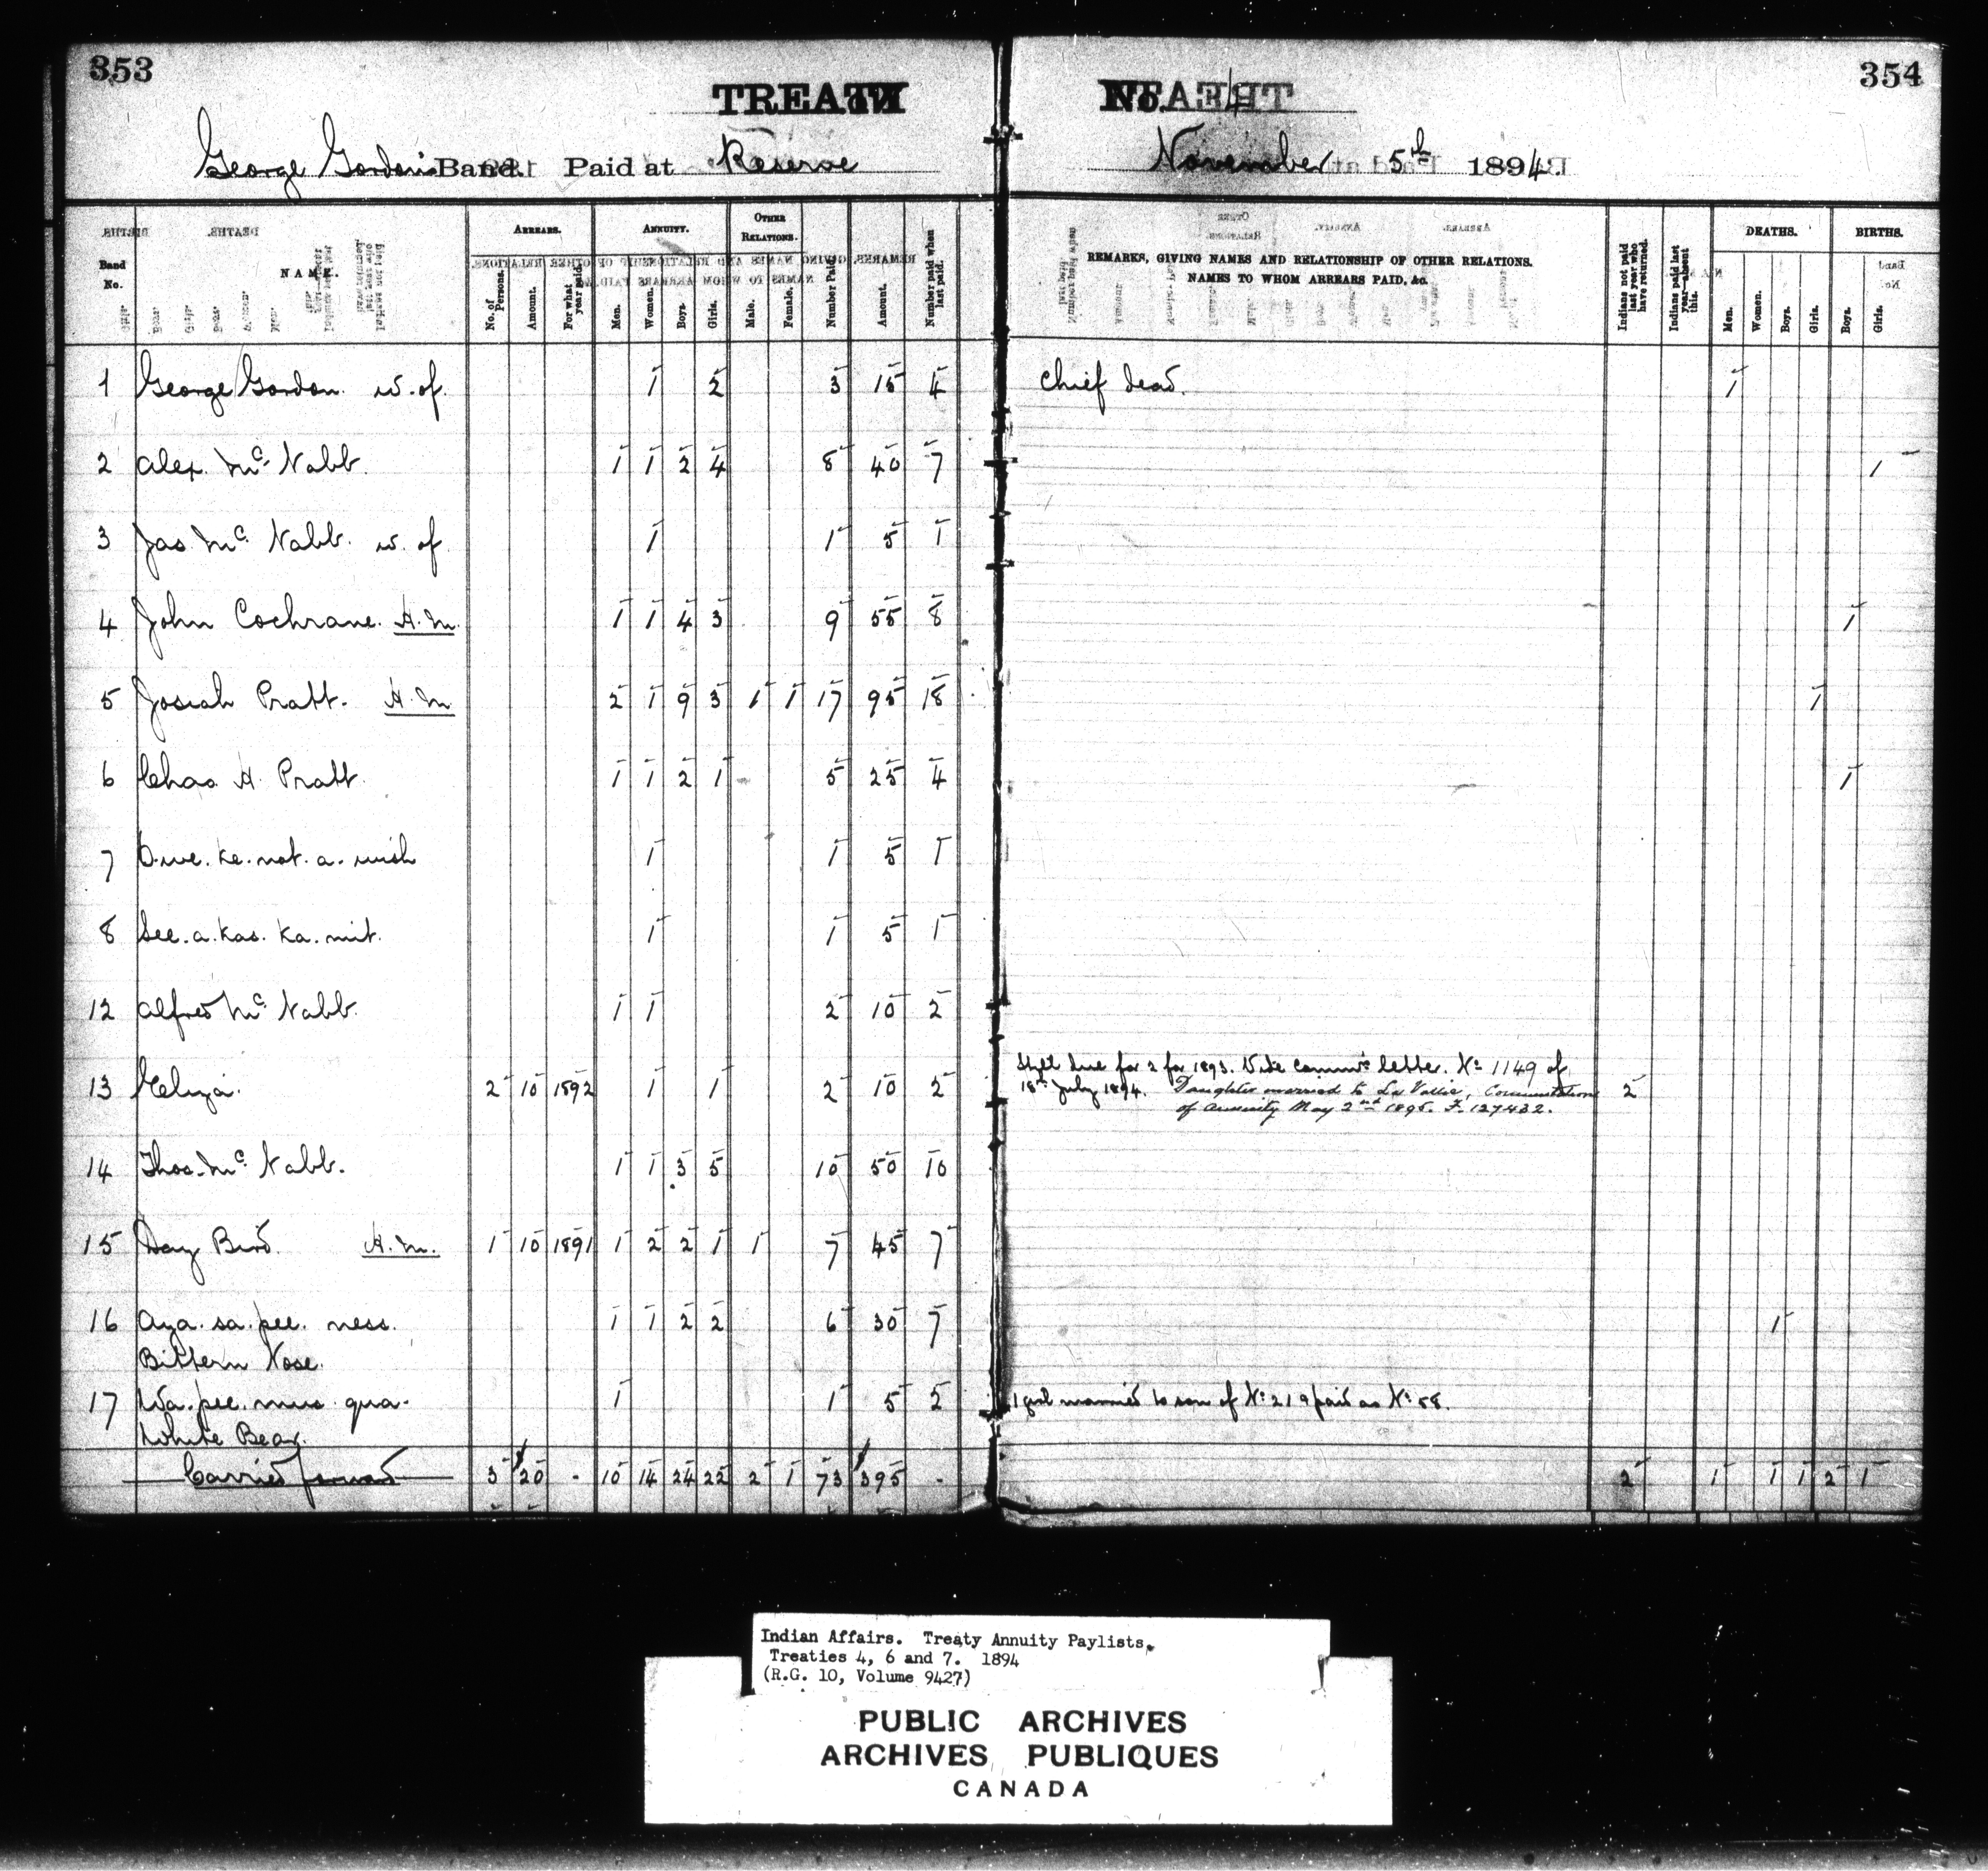 353
TREATY
George Gordon's Band. Paid at Reserve
Band No. NAME. ARREARS. ANNUITY. OTHER RELATIONS.
No. of Persons. Amount. For what year paid. Men. Women. Boys. Girls. Male. Female. Number Paid. Amount. Number paid when last paid.
1 George Gordon w. of 1 2 3 15 4
2 Alex. Mc Nabb. 1 1 2 4 8 40 7
3 Jas Mc Nabb. w. of 1 1 5 1
4 John Cochrane. H.M. 1 1 4 3 9 55 8
5 Josiah Pratt. H.M 2 1 9 3 1 1 17 95 18
6 Chas H Pratt 1 1 2 1 5 25 4
7 O.we.ke.not.a.wish 1 1 5 1
8 See.a.kas.ka.mit. 1 1 5 1
12 Alfred Mc Nabb. 1 1 2 10 2
13 Eliza. 2 10 1892 1 1 2 10 2
14 Thos. Mc Nabb. 1 1 3 5 10 50 10
15 Day Bird. H.M. 1 10 1891 1 2 2 1 1 7 45 7
16 Aya.sa.pee.ness. 1 1 2 2 6 30 7
Bittern Nose.
17 Wa.pee.mus.qua. 1 1 5 2
White Bear.
Carried forward 3 $20 - 10 14 24 22 2 1 73 $395 -
354
No. 4
November 5th 1894.
REMARKS, GIVING NAMES AND RELATIONSHIP OF OTHER RELATIONS.
NAMES TO WHOM ARREARS PAID, &c.
Indians not paid last year who have returned.
Indians paid last year—absent this.
DEATHS. BIRTHS.
Men. Women. Boys. Girls. Boys. Girls.
Chief dead. 1
1
1
1
1
Still due for 2 for 1893. Vide Commr's letter. No 1149 of
18th July 1894. Daughter married to La Vallie, Commutation 2
of annuity May 2nd 1895. F. 127432.
1
1 girl married to son of No 21 & paid as No 58.
2 1 1 1 2 1
Indian Affairs. Treaty Annuity Paylists.
Treaties 4, 6 and 7. 1894
(R.G. 10, Volume 9427)
PUBLIC ARCHIVES
ARCHIVES PUBLIQUES
CANADA